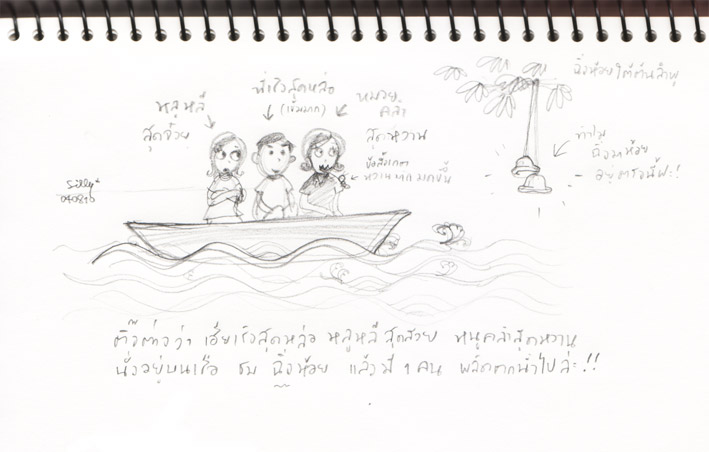 ฉิ่งห้อยใต้ต้นลำพู
พี่เร็วสุดหล่อ
(เข้มมาก)
หมวย
คล้ำ
สุดหวาน
หลูหลี
สุดสวย
ทำไม
ฉิ่งมาห้อย
อยู่ตรงนี้ฟะ!!
Silly
040210
ติ๊ต่างว่า เฮียเร็วสุดหล่อ หลูหลีสุดสวย หนูคล้ำสุดหวาน
นั่งอยู่บนเรือ ชม ฉิ่งห้อย แล้วมี 1 คน พลัดตกน้ำไปล่ะ!!